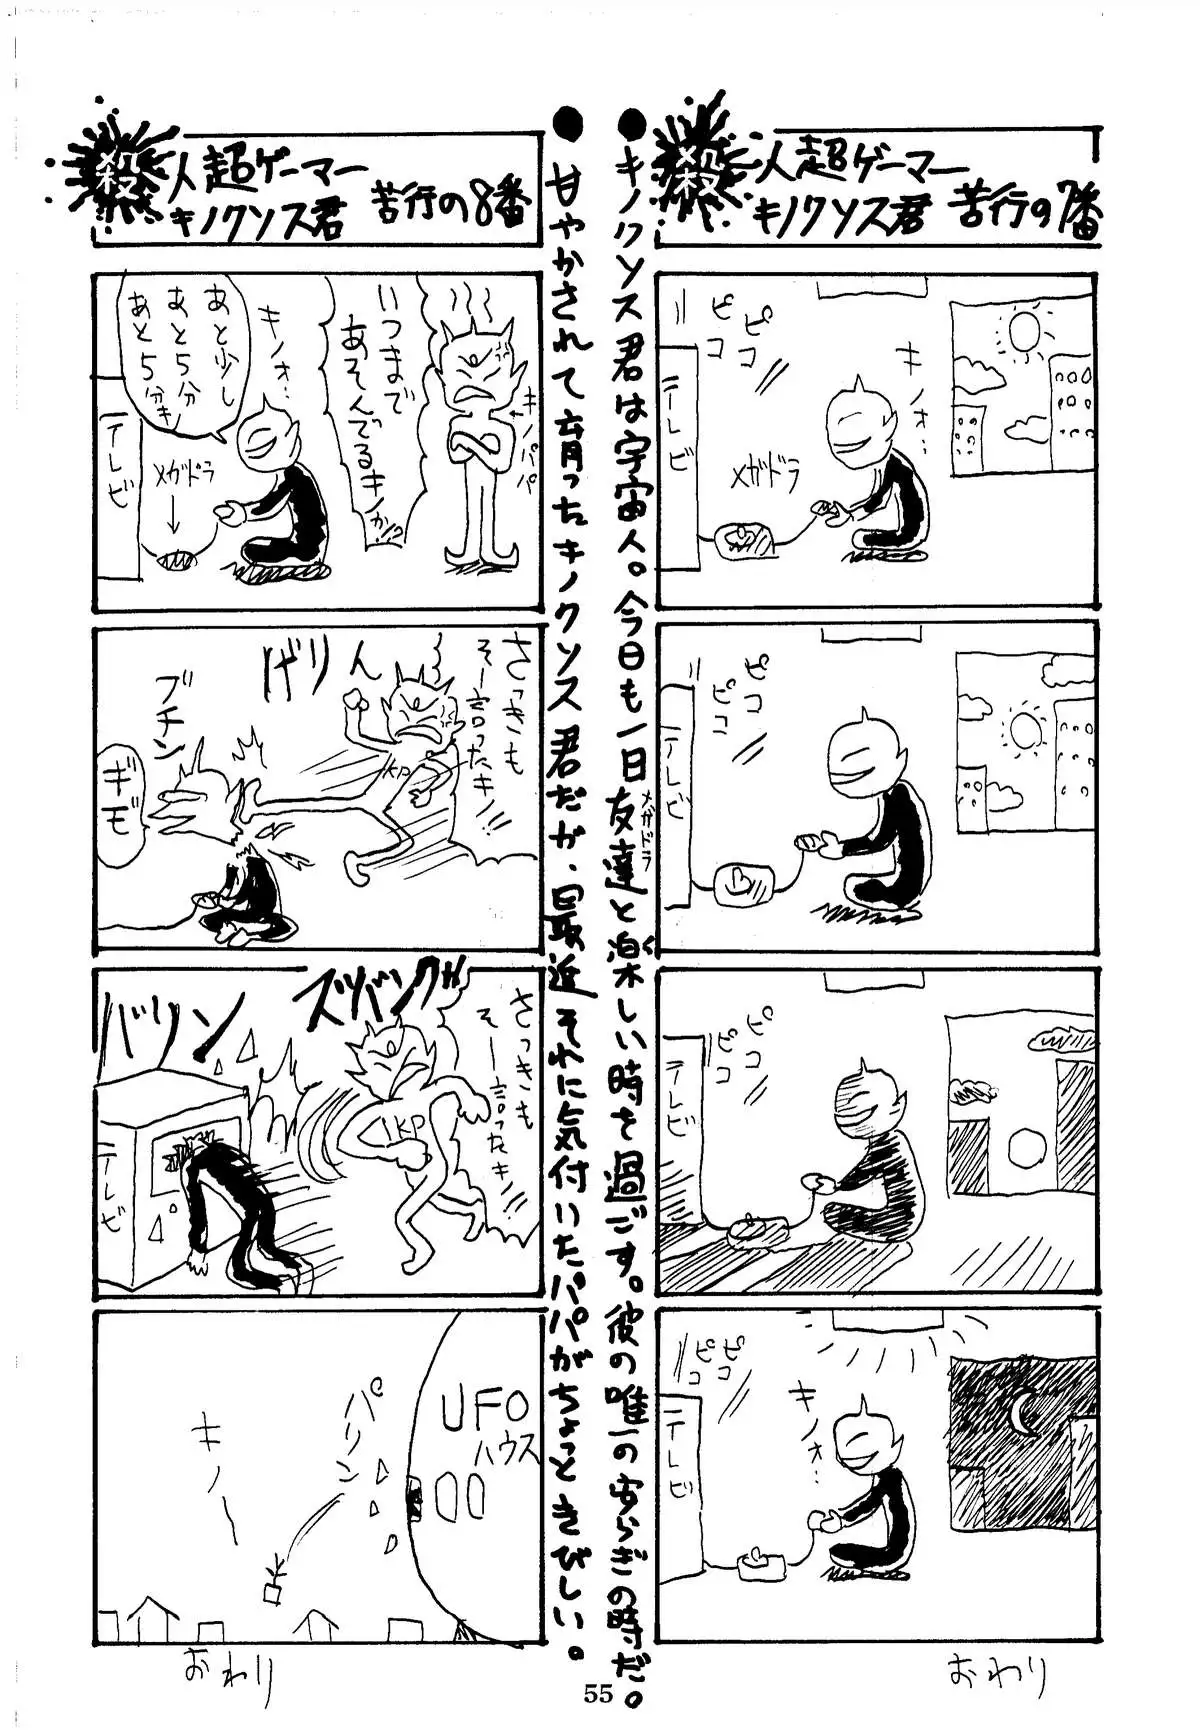 殺人超ゲーマー
キノクソス君 苦行の7番
●キノクソス君は宇宙人。今日も一日友達と楽しい時を過ごす。彼の唯一の安らぎの時だ。
メガドラ
ピコ
ピコ
キノォ…
メガドラ
テレビ
ピコ
ピコ
テレビ
ピコ
ピコ
テレビ
ピコ
ピコ
キノォ…
テレビ
おわり
殺人超ゲーマー
キノクソス君 苦行の8番
●甘やかされて育ったキノクソス君だが、最近それに気付いたパパがちょっときびしい。
キノパパ
いつまで
あそんでるキノか!?
キノォ…
あと少し
あと5分
あと5分キノ
メガドラ
↓
テレビ
さっきも
そー言ったキノ!!
げりん
KP
ブチン
ギモ
さっきも
そー言ったキノ!!
KP
バリン
テレビ
UFO
ハウス
パリン
キノー
おわり
55